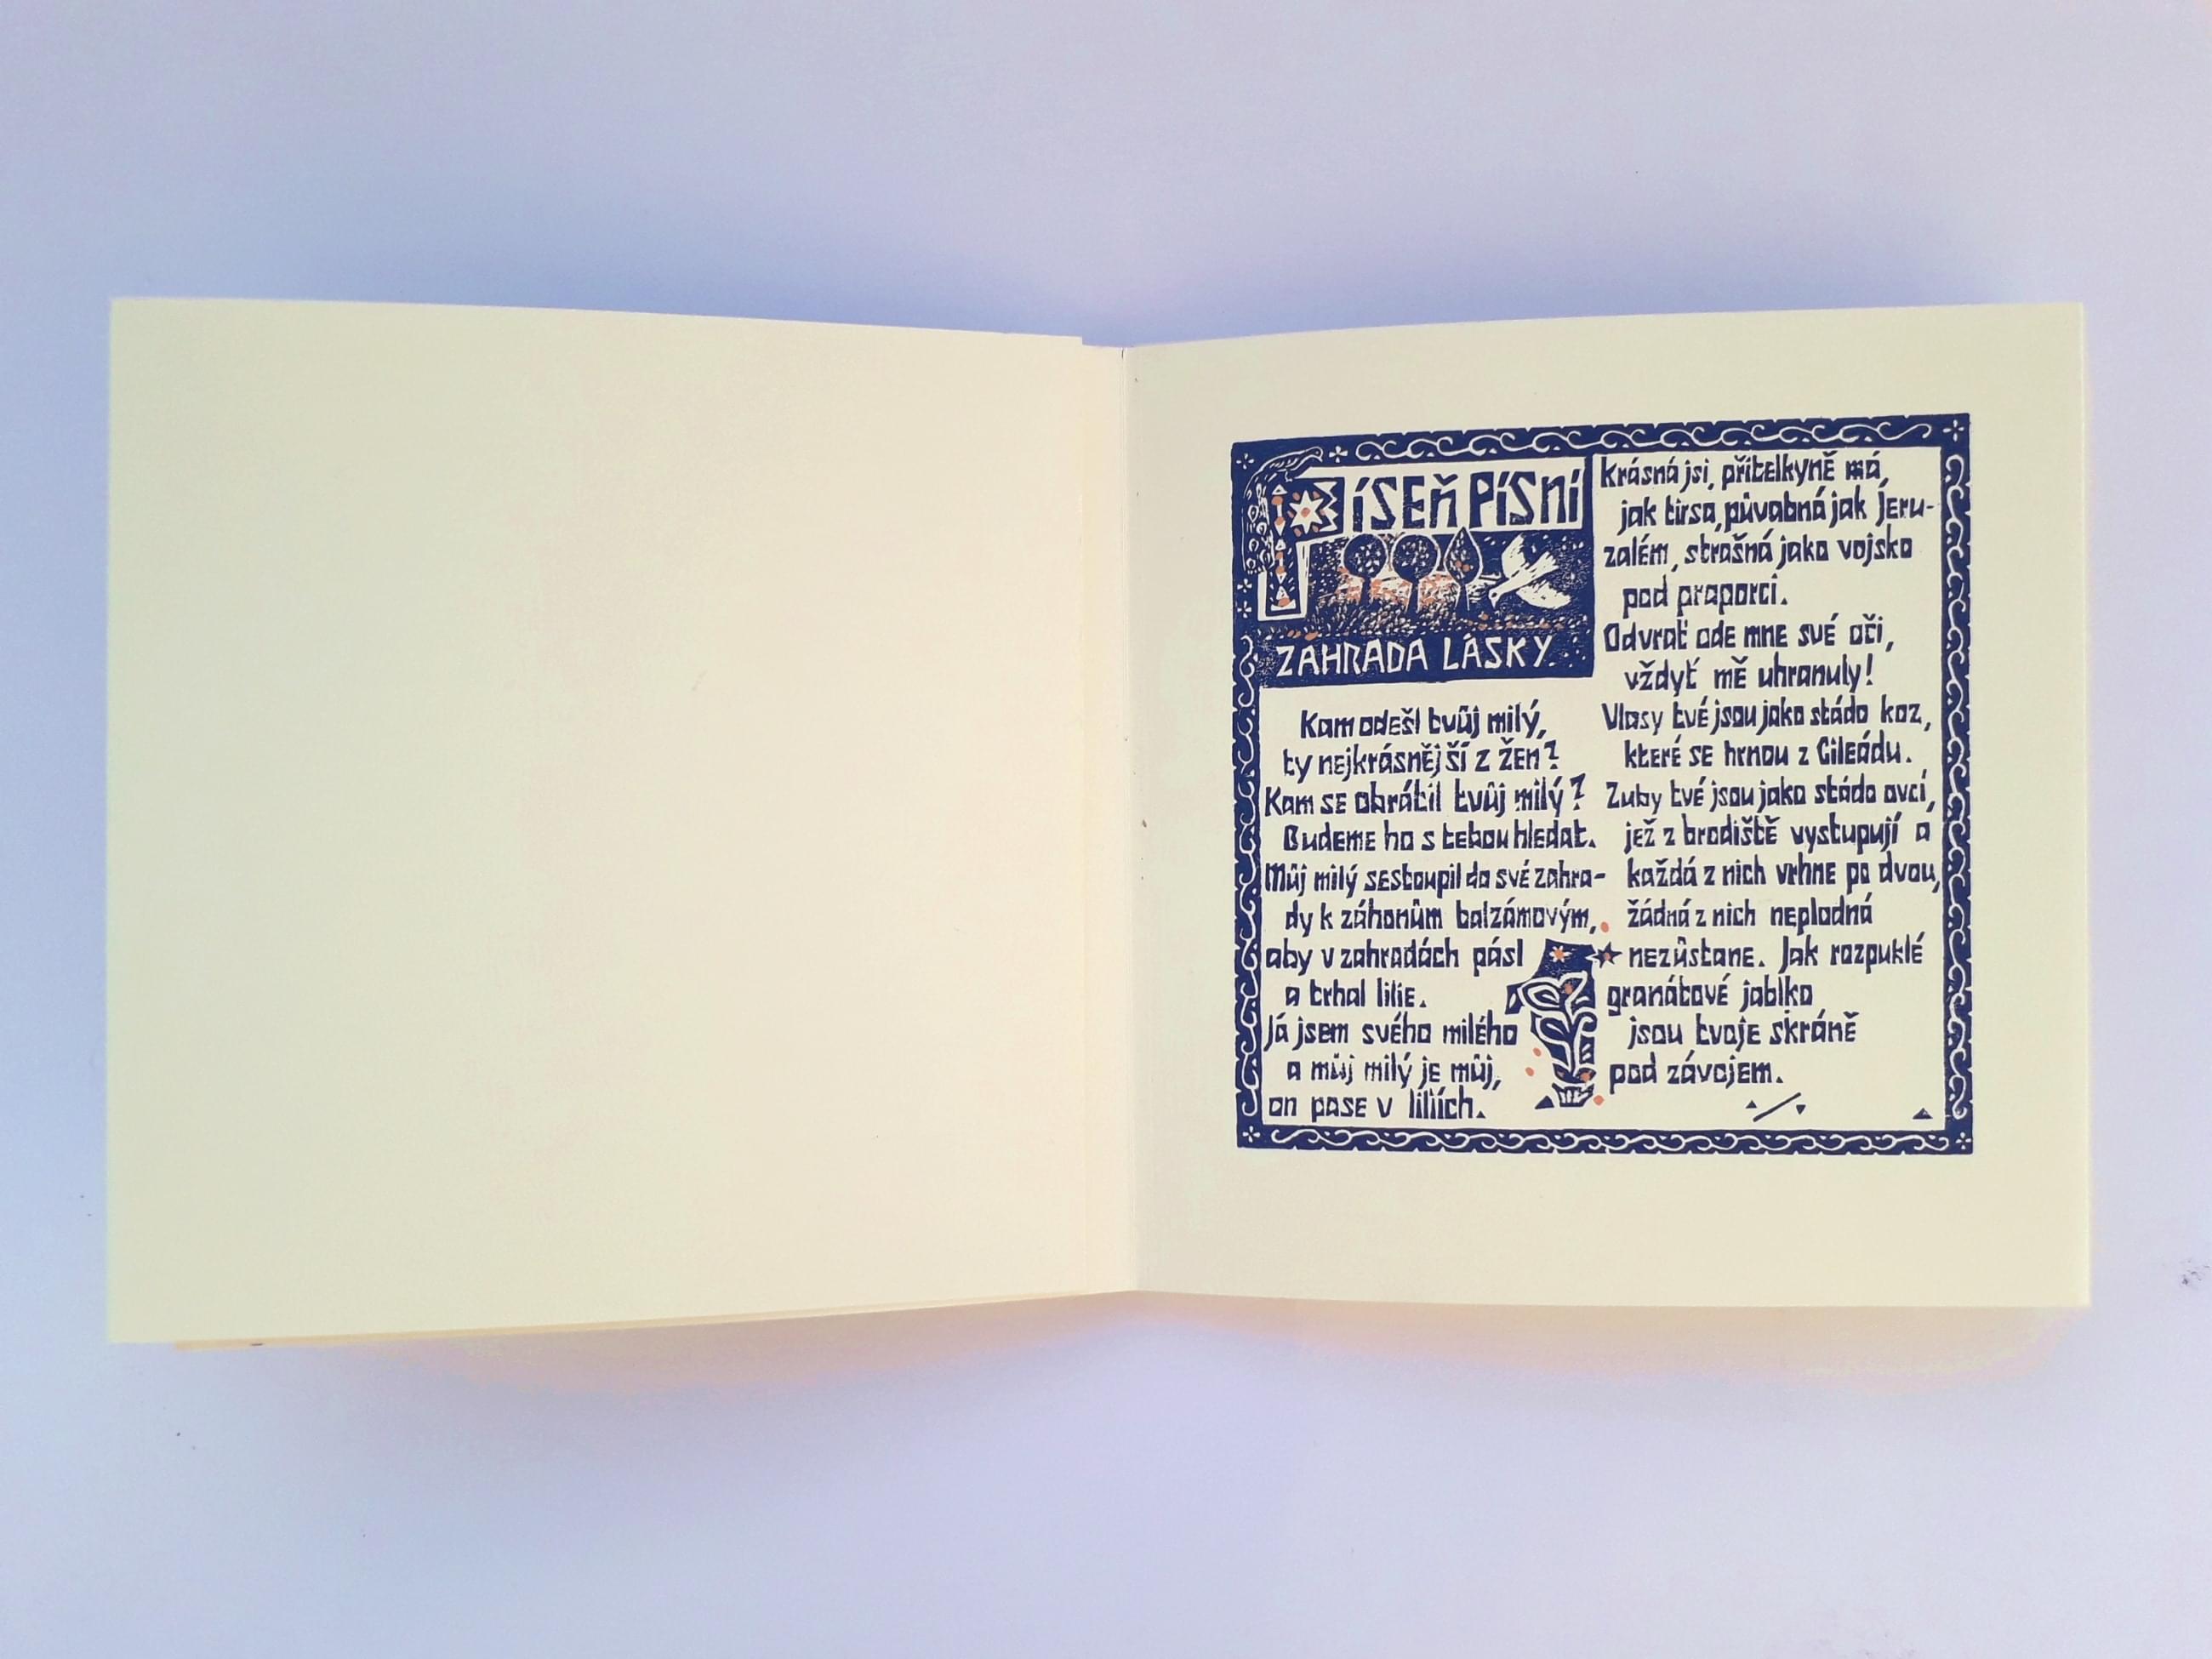 Píseň Písní
ZAHRADA LÁSKY
Kam odešl tvůj milý,
ty nejkrásnější z žen?
Kam se obrátil tvůj milý?
Budeme ho s tebou hledat.
Můj milý sestoupil do své zahra-
dy k záhonům balzámovým,
aby v zahradách pásl
a trhal lilie.
Já jsem svého milého
a můj milý je můj,
on pase v liliích.
krásná jsi, přítelkyně má,
jak tirsa, půvabná jak Jeru-
zalém, strašná jako vojsko
pod praporci.
Odvrať ode mne své oči,
vždyť mě uhranuly!
Vlasy tvé jsou jako stádo koz,
které se hrnou z Gileádu.
Zuby tvé jsou jako stádo ovcí,
jež z brodiště vystupují a
každá z nich vrhne po dvou,
žádná z nich neplodná
nezůstane. Jak rozpuklé
granátové jablko
jsou tvoje skráně
pod závojem.